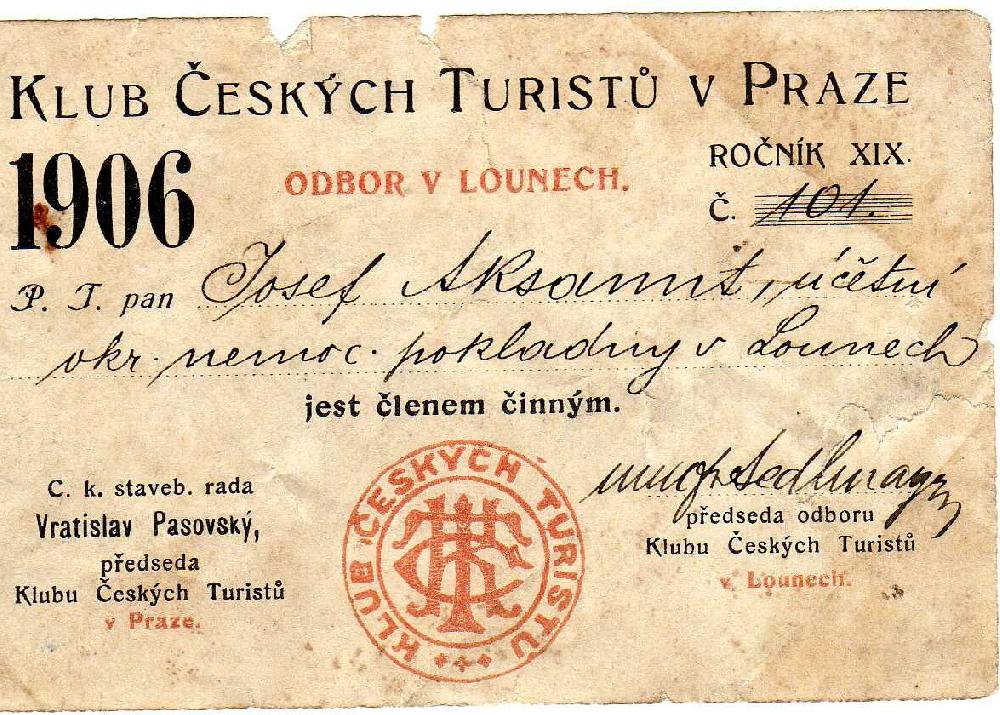 KLUB ČESKÝCH TURISTŮ V PRAZE
1906
ODBOR V LOUNECH.
ROČNÍK XIX.
Č. 101.
P. T. pan Josef Aksamit, účetní
okr. nemoc. pokladny v Lounech
jest členem činným.
C. k. staveb. rada
Vratislav Pasovský,
předseda
Klubu Českých Turistů
v Praze.
KLUB ČESKÝCH TURISTŮ
KČT
Sedlmayr
předseda odboru
Klubu Českých Turistů
v Lounech.